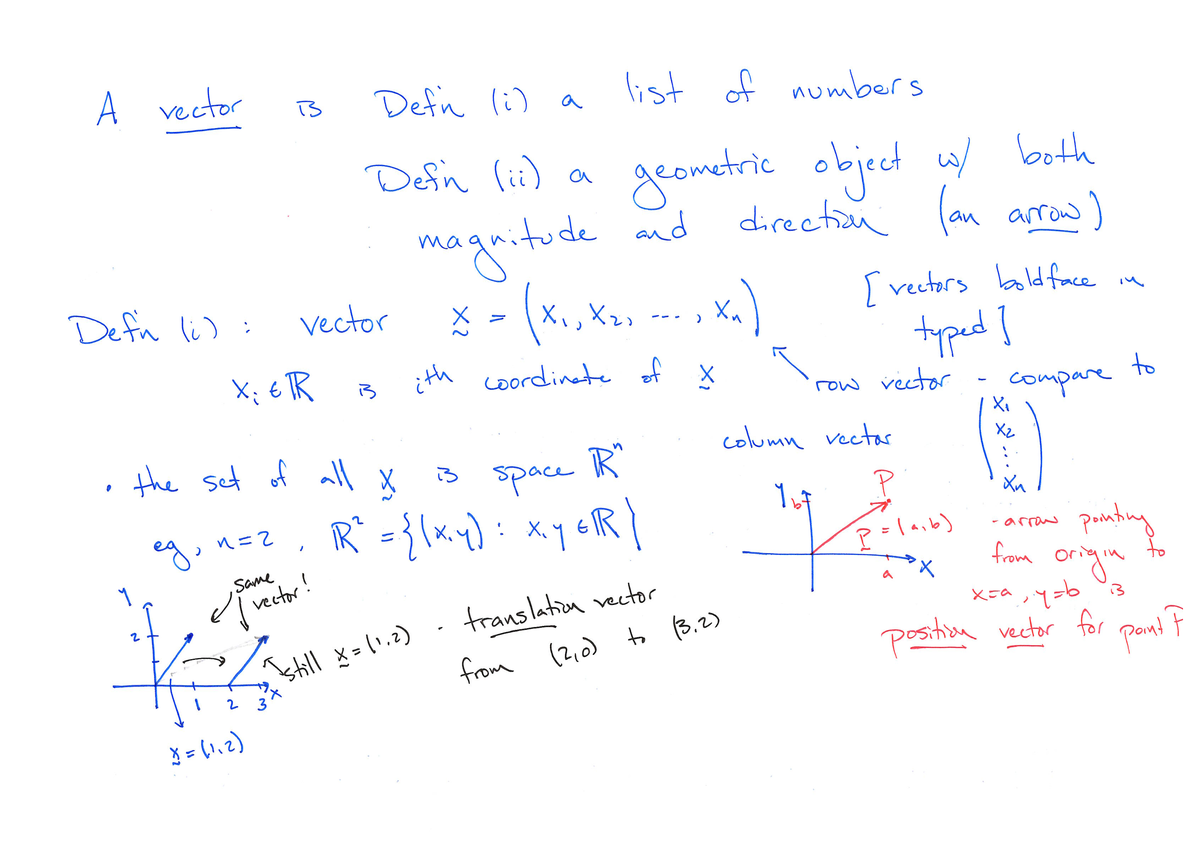 A vector is Def'n (i) a list of numbers
Def'n (ii) a geometric object w/ both
magnitude and direction (an arrow)
[vectors boldface in
typed]
Def'n (i) : vector x̰ = (x₁, x₂, ---, xₙ)
xᵢ ∈ ℝ is ith coordinate of x̰
row vector - compare to
column vector
x₁
x₂
⋮
xₙ
• the set of all x̰ is space ℝⁿ
eg, n=2, ℝ² = {(x,y) : x,y ∈ ℝ}
y
b
P
P = (a,b)
a
x
- arrow pointing
from origin to
x=a, y=b is
position vector for point P
y
same
vector!
2
1 2 3 x
x̰ = (1,2)
still x̰ = (1,2) - translation vector
from (2,0) to (3,2)